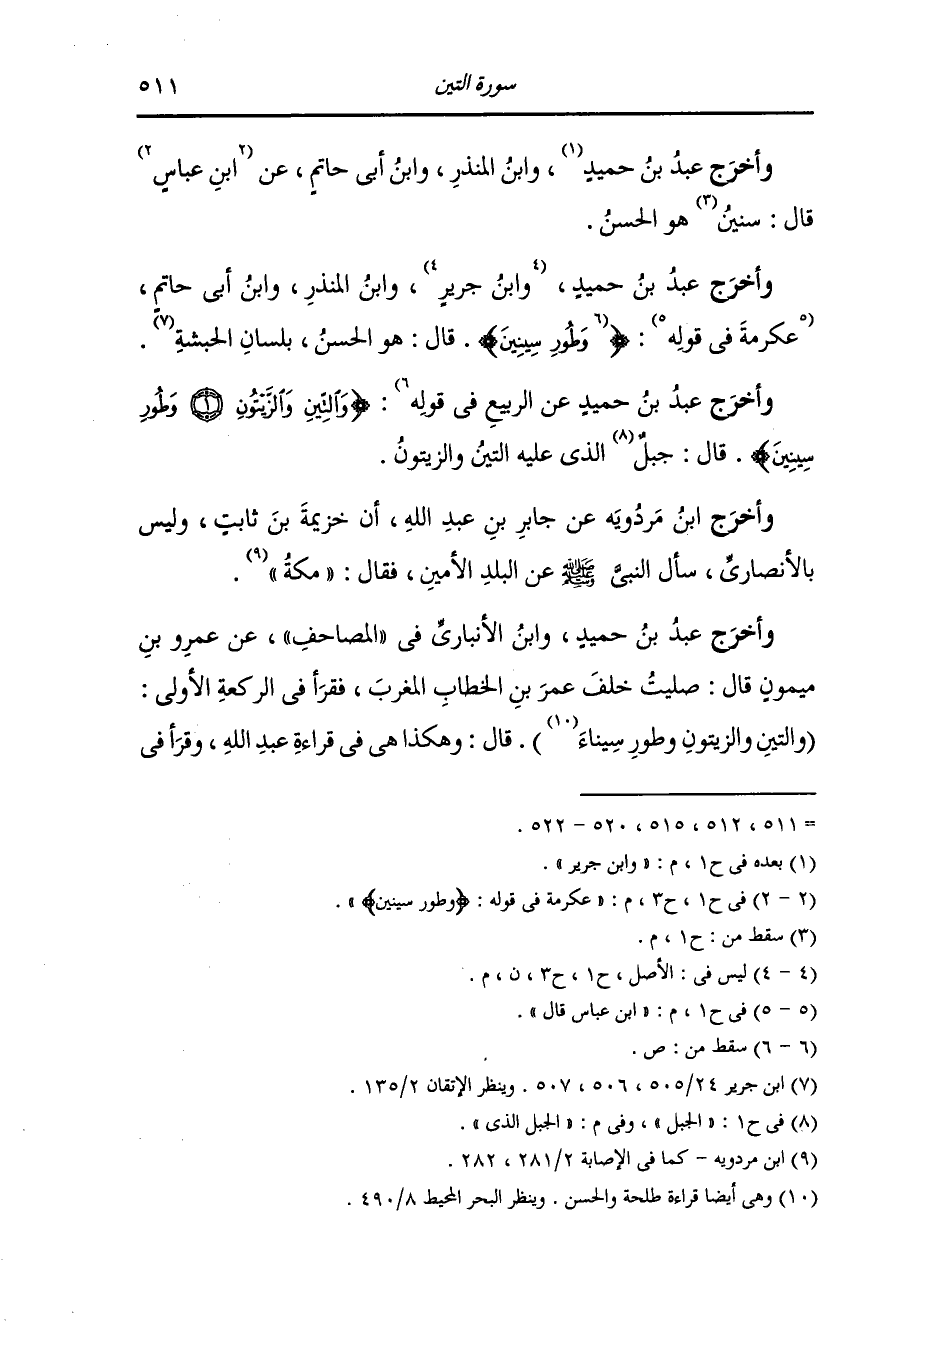 سورة التين ٥١١
وأخرَج عبدُ بنُ حميدٍ(١) ، وابنُ المنذرِ ، وابنُ أبى حاتمٍ ، عن (٢ابنِ عباسٍ٢)
قال : سنينُ(٣) هو الحسنُ .
وأخرَج عبدُ بنُ حميدٍ ، (٤وابنُ جريرٍ٤) ، وابنُ المنذرِ ، وابنُ أبى حاتمٍ ،
(٥عكرمةَ فى قولِه٥) : ﴿(٦وَطُورِ سِينِينَ﴾ . قال : هو الحسنُ ، بلسانِ الحبشةِ(٧) .
وأخرَج عبدُ بنُ حميدٍ عن الربيعِ فى قولِه٦) : ﴿وَٱلتِّينِ وَٱلزَّيْتُونِ ۝١ وَطُورِ
سِينِينَ﴾ . قال : جبلٌ(٨) الذى عليه التينُ والزيتونُ .
وأخرَج ابنُ مَردُويَه عن جابرِ بنِ عبدِ اللهِ ، أن خزيمةَ بنَ ثابتٍ ، وليس
بالأنصارىِّ ، سأل النبىَّ ﷺ عن البلدِ الأمينِ ، فقال : « مكةُ »(٩) .
وأخرَج عبدُ بنُ حميدٍ ، وابنُ الأنبارىِّ فى «المصاحفِ» ، عن عمرِو بنِ
ميمونٍ قال : صليتُ خلفَ عمرَ بنِ الخطابِ المغربَ ، فقرَأ فى الركعةِ الأولى :
(والتينِ والزيتونِ وطورِ سِيناءَ(١٠)) . قال : وهكذا هى فى قراءةِ عبدِ اللهِ ، وقرَأ فى
= ٥١١ ، ٥١٢ ، ٥١٥ ، ٥٢٠ – ٥٢٢ .
(١) بعده فى ح١ ، م : « وابن جرير » .
(٢ – ٢) فى ح١ ، ح٣ ، م : « عكرمة فى قوله : ﴿وطور سينين﴾ » .
(٣) سقط من : ح١ ، م .
(٤ – ٤) ليس فى : الأصل ، ح١ ، ح٣ ، ن ، م .
(٥ – ٥) فى ح١ ، م : « ابن عباس قال » .
(٦ – ٦) سقط من : ص .
(٧) ابن جرير ٥٠٥/٢٤ ، ٥٠٦ ، ٥٠٧ . وينظر الإتقان ١٣٥/٢ .
(٨) فى ح١ : « الجبل » ، وفى م : « الجبل الذى » .
(٩) ابن مردويه – كما فى الإصابة ٢٨١/٢ ، ٢٨٢ .
(١٠) وهى أيضا قراءة طلحة والحسن . وينظر البحر المحيط ٤٩٠/٨ .